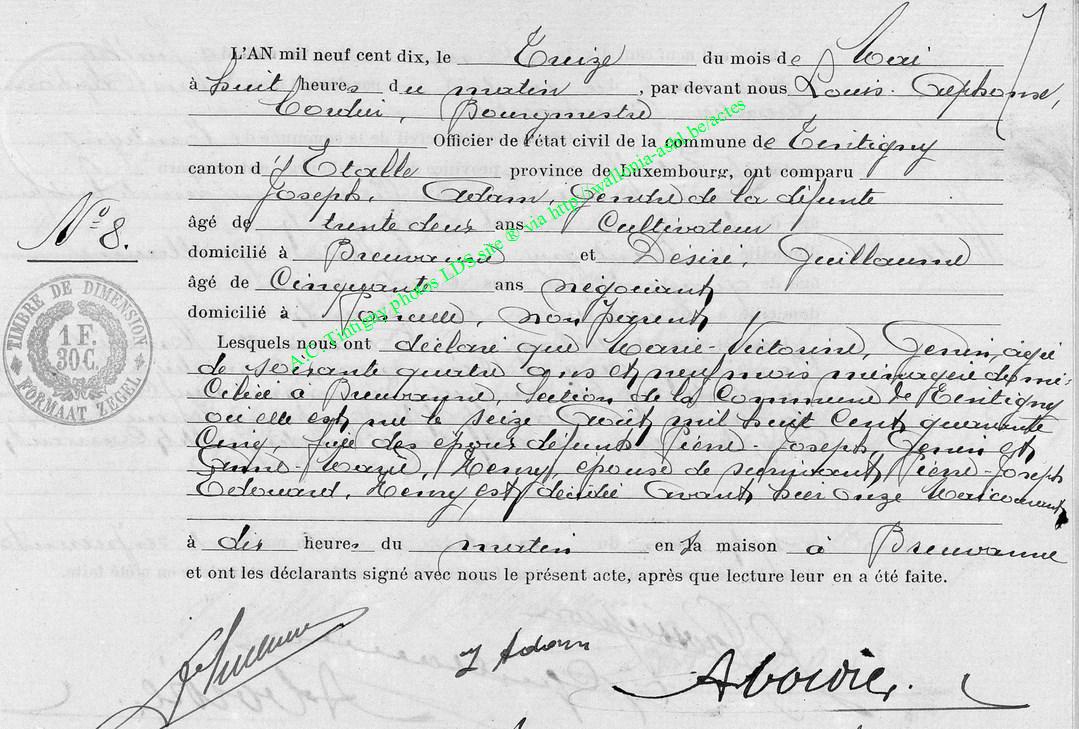 L'AN mil neuf cent dix, le Treize du mois de Mai
à huit heures du matin, par devant nous Louis-Alphonse,
Bourgmestre
Officier de l'état civil de la commune de Tintigny
canton d'Etalle province de Luxembourg, ont comparu
Joseph, Adam, Gendre de la défunte
âgé de trente deux ans Cultivateur
domicilié à Breuvanne et Désiré, Guillaume
N° 8.
âgé de Cinquante ans négociant
domicilié à non parent
Lesquels nous ont déclaré que Marie-Victorine, Genin, agée
de soixante quatre ans et neuf mois ménagère domi-
ciliée à Breuvanne, Section de la Commune de Tintigny
où elle est née le seize Août mil huit cent quarante
Cinq fille des époux défunts Pierre-Joseph, Genin et
Marie, Henry, épouse de survivant Pierre-Joseph
Edouard, Henry est décédée avant hier onze Mai courant
à dix heures du matin en sa maison à Breuvanne
et ont les déclarants signé avec nous le présent acte, après que lecture leur en a été faite.
J Adam
TIMBRE DE DIMENSION
1 F.
30 C.
FORMAAT ZEGEL
A.C. Tintigny photos LDS site ® via http://wallonia-asbl.be/actes